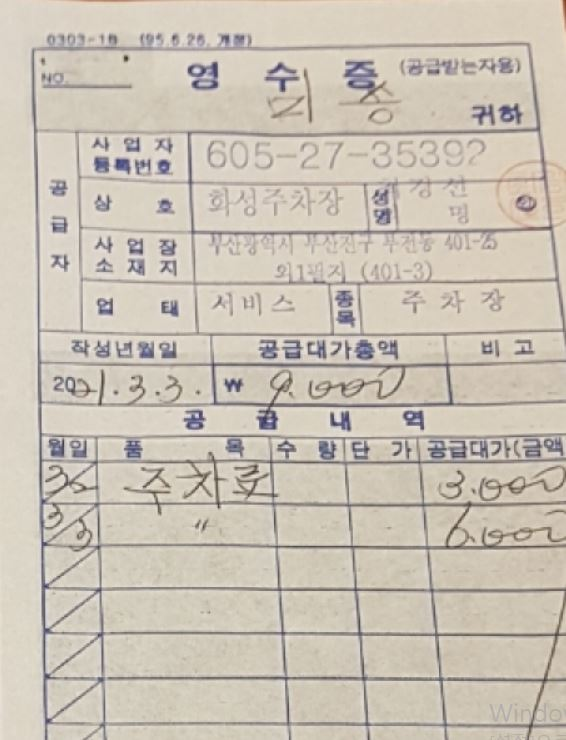 0303-1B (95.6.26. 개정)
NO.
영 수 증 (공급받는자용)
귀하
공급자
사업자등록번호 605-27-35392
상 호 화성주차장 성명
사업장소재지 부산광역시 부산진구 부전동 401-25
외1필지 (401-3)
업 태 서비스 종목 주차장
작성년월일 공급대가총액 비고
2021.3.3. ₩ 9.000
공 급 내 역
월일 품 목 수량 단가 공급대가(금액
주차료 3.000
3/3 〃 6.000